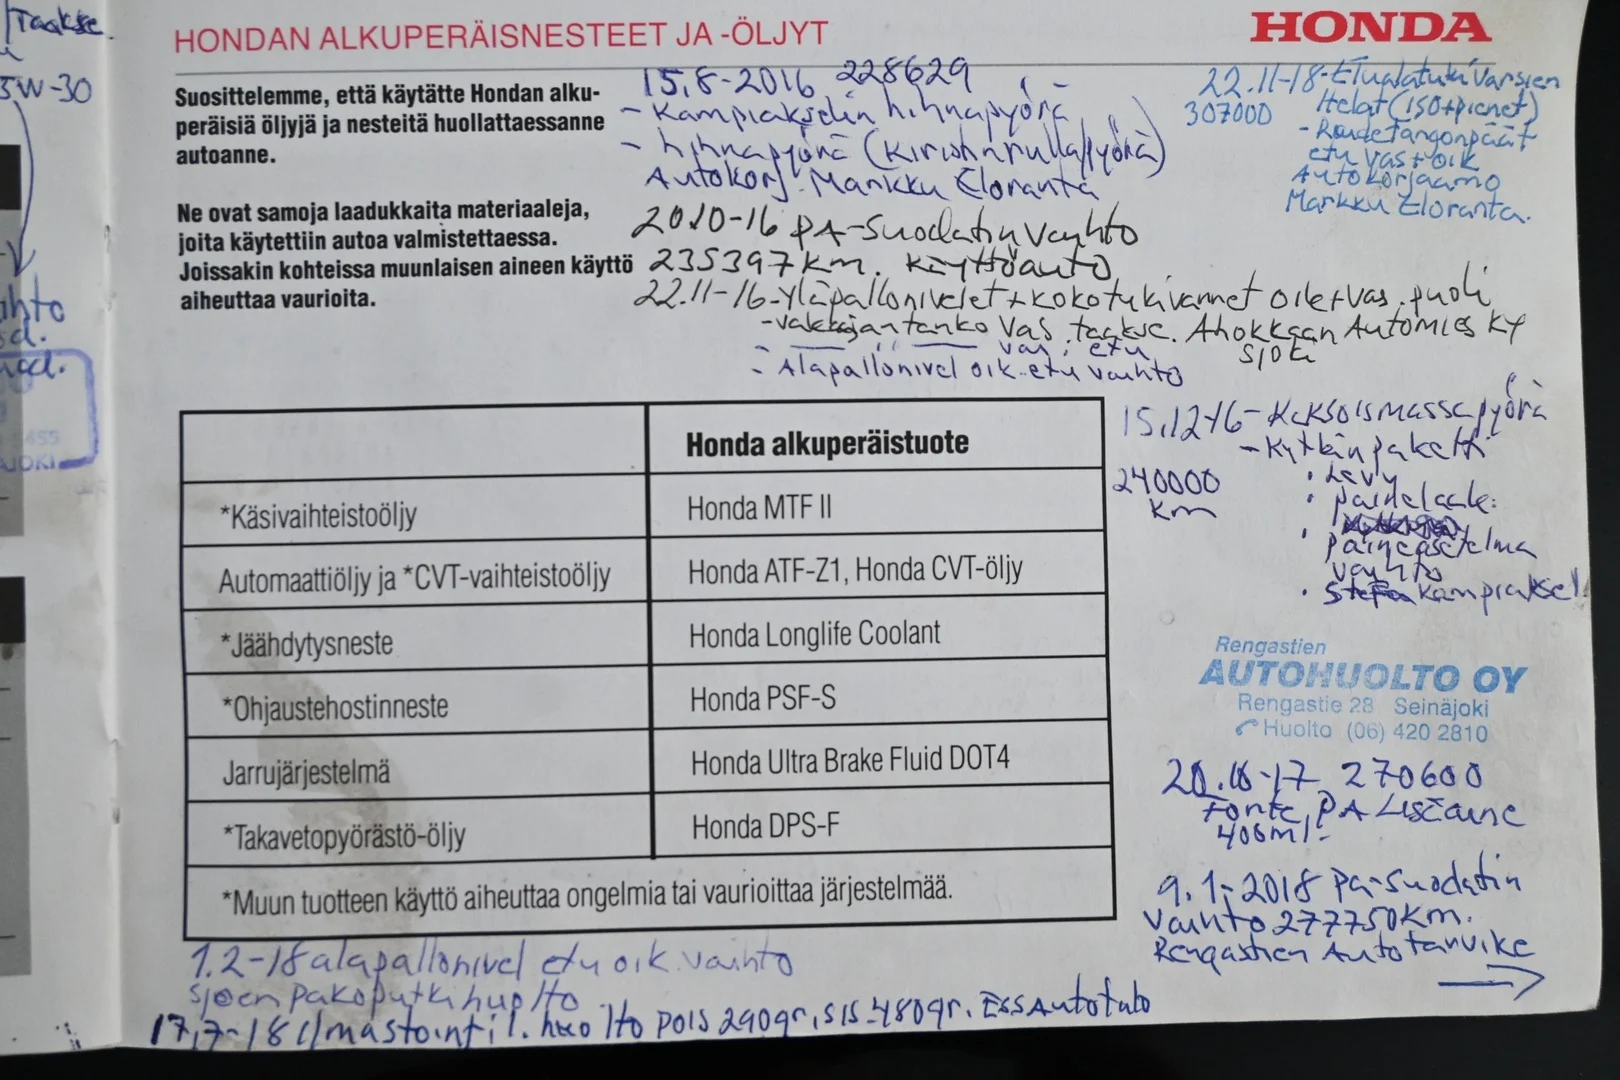 Taakse
5W-30
HONDAN ALKUPERÄISNESTEET JA -ÖLJYT
HONDA
Suosittelemme, että käytätte Hondan alku-
peräisiä öljyjä ja nesteitä huollattaessanne
autoanne.
Ne ovat samoja laadukkaita materiaaleja,
joita käytettiin autoa valmistettaessa.
Joissakin kohteissa muunlaisen aineen käyttö
aiheuttaa vaurioita.
15.8-2016 228629
- Kampiakselin hihnapyörä
- hihnapyörä (kiristinrullapyörä)
Autokorj. Markku Eloranta
2010-16 PA-Suodatin Vaihto
235397 km. Käyttöauto
22.11-16-Yläpallonivelet+koko tukivarret oik+vas. puoli
-vakaajantanko Vas. taakse. Ahokkaan Automies Ky
SJOKI
- vas. etu
- Alapallonivel oik. etu vaihto
22.11-18-Etualatukivarsien
307000 Helat (iso+pienet)
- Raidetangonpäät
etu vas+oik
Autokorjaamo
Markku Eloranta.
15.12-16-Kaksoismassapyörä
- Kytkinpaketti
240000
km
• Levy
• painelaake:
• paineasetelma
vaihto
• Stefa kampiaksel.
Honda alkuperäistuote
*Käsivaihteistoöljy Honda MTF II
Automaattiöljy ja *CVT-vaihteistoöljy Honda ATF-Z1, Honda CVT-öljy
*Jäähdytysneste Honda Longlife Coolant
*Ohjaustehostinneste Honda PSF-S
Jarrujärjestelmä Honda Ultra Brake Fluid DOT4
*Takavetopyörästö-öljy Honda DPS-F
*Muun tuotteen käyttö aiheuttaa ongelmia tai vaurioittaa järjestelmää.
Rengastien
AUTOHUOLTO OY
Rengastie 28 Seinäjoki
Huolto (06) 420 2810
20.10-17 270600
Forte PA Lisäaine
400ml.
9.1-2018 PA-Suodatin
Vaihto 277750km.
Rengastien Autotarvike
1.2-18 alapallonivel etu oik. vaihto
Sjoen pakoputkihuolto
17.7-18 ilmastointil. huolto pois 290gr, sis 480gr. Ess Autotalo